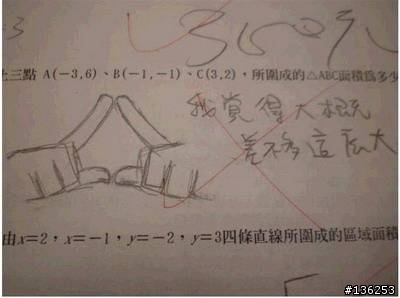 上三點 A(-3,6)、B(-1,-1)、C(3,2)，所圍成的△ABC面積為多少
我覺得大概
差不多這麼大
由x=2，x=-1，y=-2，y=3四條直線所圍成的區域面積
#136253